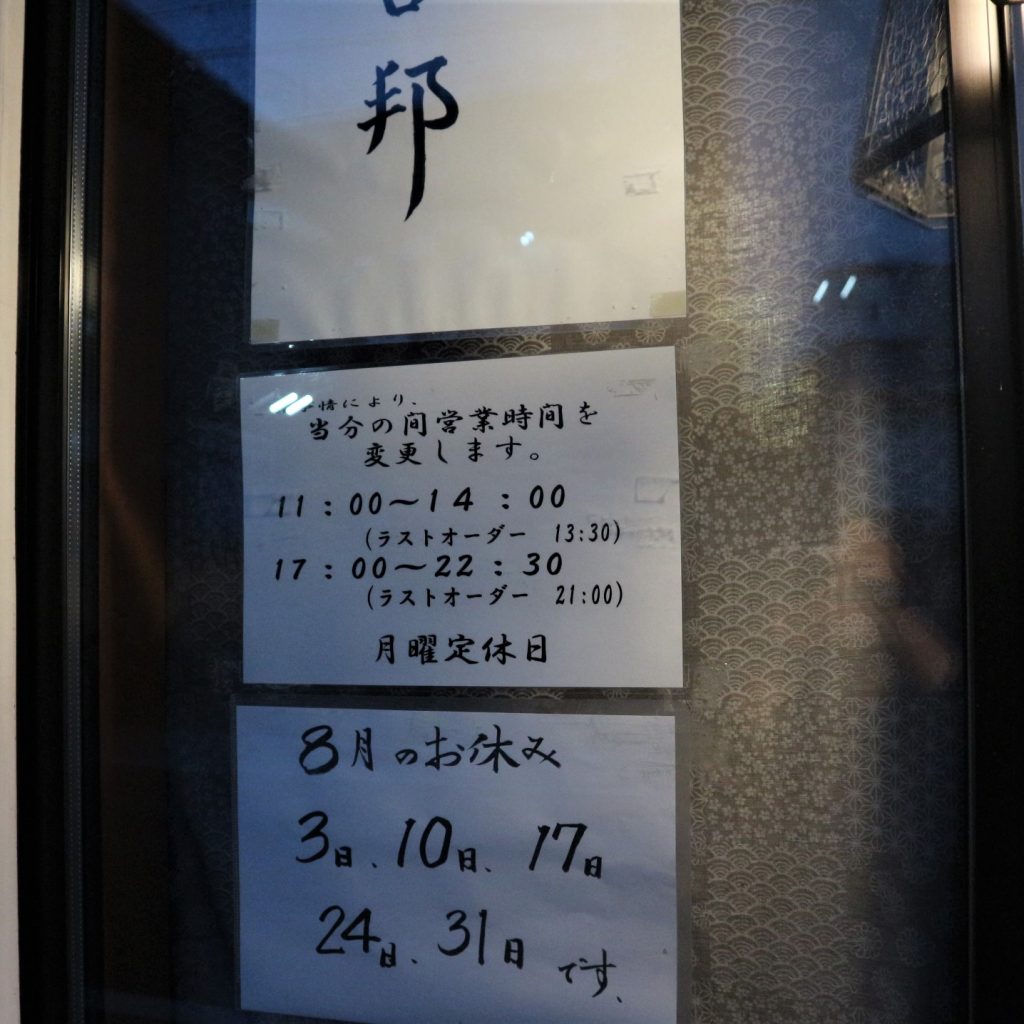 邦
情により、
当分の間営業時間を
変更します。
11：00〜14：00
(ラストオーダー 13:30)
17：00〜22：30
(ラストオーダー 21:00)
月曜定休日
8月のお休み
3日、10日、17日
24日、31日です、